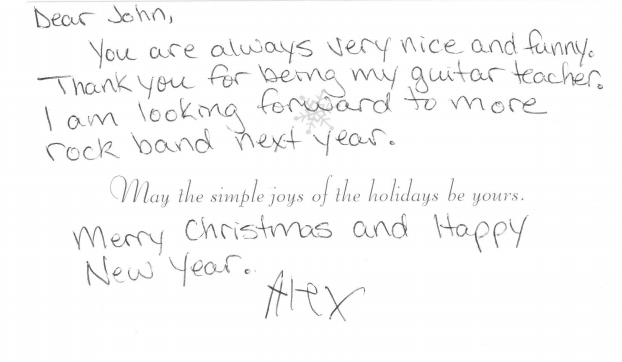 Dear John,
You are always very nice and funny.
Thank you for being my guitar teacher.
I am looking forward to more
rock band next year.
May the simple joys of the holidays be yours.
Merry Christmas and Happy
New Year.
Alex